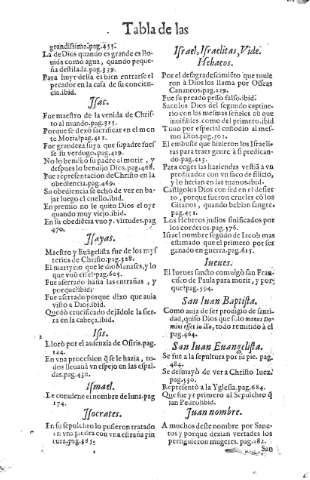 Tabla de las
grandissimo.pag.455.
La de Dios quando es grande es llouida como agua, quando pequeña destilada.pag.339.
Para huyr della es bien entrarse el pecador en la casa de su conciencia.ibid.
Isac.
Fue maestro de la venida de Christo al mundo.pag.325.
Porque se dexò sacrificar en el monte Moria.pag.42.
Por grandeza suya que su padre fuesse su verdugo.pag.419.
No lo bendixo su padre al morir, y despues lo bendixo Dios.pag.408.
Fue representacion de Christo en la obediencia.pag.469.
Su obediencia se echò de ver en baxar luego el cuello.ibid.
En premio no le quito Dios el oyr quando muy viejo.ibid.
En su obediẽcia vuo 7. virtudes.pag
470.
Isayas.
Maestro y Euãgelista fue de los mysterios de Christo.pag.328.
El martyrio que le dio Manasses, y lo que vio en el.pag.605.
Fue aserrado hasta las entrañas, y porque.ibid.
Fue aserrado porque dixo que auia visto a Dios.ibid.
Quedò crucificado dexãdole la sierra en la cabeça.ibid.
Isis.
Llorò por el ausencia de Osiris.pag.
124.
En vna procession q̃ se le hazia, todos lleuauã vn espejo en las espaldas.pag.430.
Ismael.
Le conuiene el nombre de luna.pag
174.
Isocrates.
En su sepulchro lo pusieron tratado en vna piedra con vna estraña pintura.pag.485.
Israel, Israelitas, Vide.
Hebraeos.
Por el desagradescimiẽto que tuuieron à Dios los llama por Osseas Cananeos.pag.219.
Fue su pecado peso falso.ibid.
Sacolos Dios del segundo captiuerio con las mesmas señales que inuisibles, como del primero.ibid.
Tuuo por especial custodio al mesmo Dios.pag.502.
El embuste que hizieron los Israelitas para traer gente à si predicando.pag.213.
Para coger las haziendas vestiã a vn predicador con vn saco de silicio, y le hazian en las manos.ibid.
Castigolos Dios con sed en el desierto, porque fueron crueles con los Gitanos, quando bebian sangre.
pag.451.
Los Hebreos indios sinificados por los corderos.pag.576.
Israel nombre segũdo de Iacob mas estimado que el primero por ser ganado en guerra.pag.615.
Iueues.
El Iueues sancto comulgò san Francisco de Paula para morir, y porque.pag.504.
San Iuan Baptista.
Como auia de ser prodigio de santidad, quiso Dios que solo manus Domini esset in illo, todo remitido à el.
pag.464.
San Iuan Euangelista.
Se fue a la sepultura por su pie. pag.
484.
Se desmayò de ver a Christo Iuez.
pag.590.
Representò a la Yglesia.pag.684.
Que fue y primero al Sepulchro q̃ san Pedro.ibid.
Iuan nombre.
A muchos deste nombre por Santos y porque dezian verdades los persiguieron mugeres.pag.182.
San